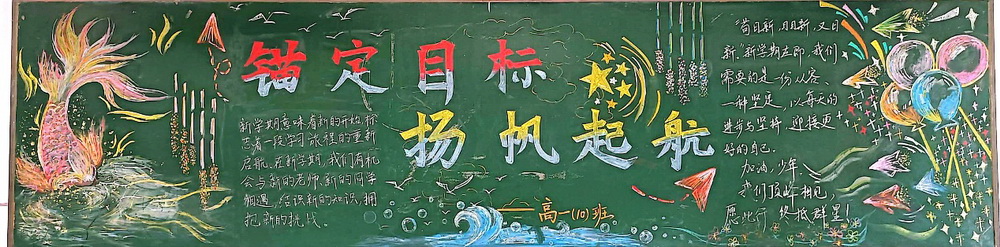 锚定目标
扬帆起航
新学期意味着新的开始,标
志着一段学习旅程的重新
启航。在新学期,我们有机
会与新的老师、新的同学
相遇,结识新的知识,拥
抱新的挑战。
高一(10)班
苟日新,日日新,又日
新。新学期在即,我们
需要的是一份从容
一种坚定,以每天的
进步与坚持,迎接更
好的自己.
加油,少年.
我们顶峰相见
愿此行 终抵群星!